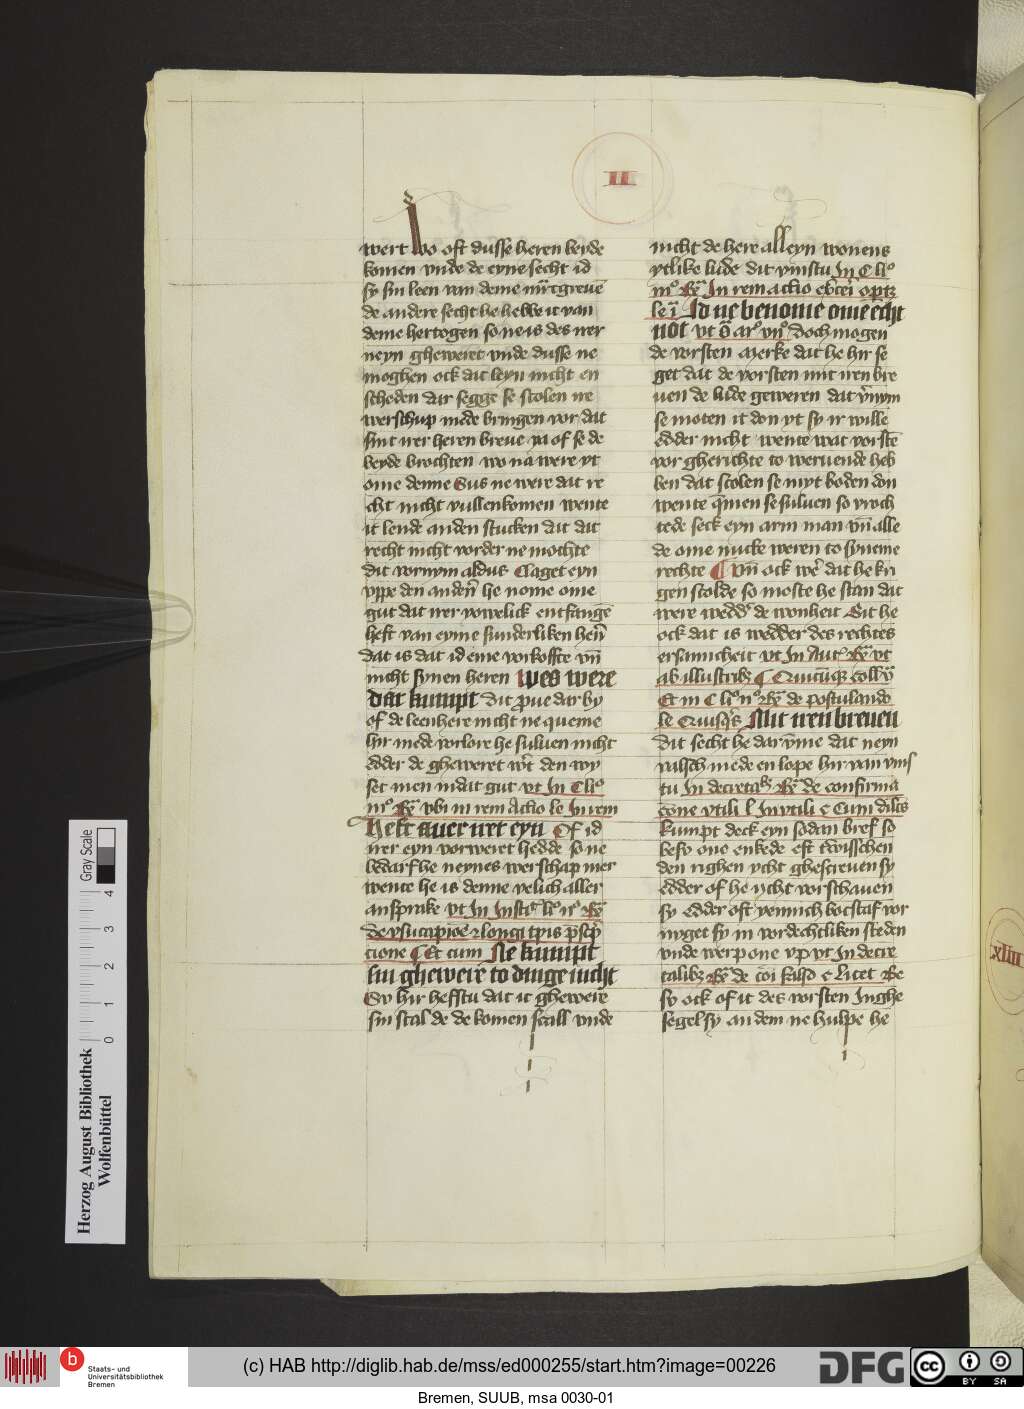 II
wert wo oft dusse heren beyde
komen vnde de eyne secht id
sy sin leen van deme
de andere secht he hebbe it van
deme hertogen so ne is des ner
neyn gheweret vnde dusse ne
moghen ock dat leyn nicht en
scheden dar segge se scolen ne
werschup mede bringen vor dat
sint nrer heren breue ya of se de
beyde brochten wo na were yt
ome denne Sus ne were dat re
cht nicht vullenkomen wente
it lende anden stucken dat dat
recht nicht vorder ne mochte
dit vornym aldus Claget eyn
vppe den anderñ he nome ome
gut dat
heft van eyme sunderliken herñ
dat is dat id eme vorkoffte vñ
nicht synen heren Wes were
dar kumpt dit proue dar by
of de leenhere nicht ne queme
hir mede vorlore he suluen nicht
edder de gheweret den wy
set men in dat gut vt In C liº
mº Rẽ vbi in rem actio le In rem
Heft auer nrer eyn Of id
nrer eyn vorweret hedde so ne
bedarf he neynes werschap mer
wente he is denne velich aller
ansprake vt In Institᵗ liº iiº Rẽ
de vsucapioẽ longi tpis pscp
cione ¶ Et cum Ne kumpt
sin ghewere to dinge nicht
Sy hir hefstu dat it ghewere
sin scal de de komen scall vnde
nicht de here alleyn wonens
ytlike lude dit vinstu In C liº
mº Rẽ In rem actio
le Id ne benome ome echt
not vt doch mogen
de vorsten Merke dat he hir se
get dat de vorsten mit nren bre
uen de lude geweren dat
se moten it don yt sy ir wille
edder nicht wente wat vorstẽ
vor gherichte to weruende heb
ben dat scolen se myt boden don
wente qmen se suluen so vroch
tede seck eyn arm man vñ alle
de ome nucke weren to syneme
rechte ¶ Vñ ock we dat he kri
gen scolde so moste he stan dat
were wedd de wonheit Sit he
ock dat is wedder des rechtes
ersamicheit vt In Aut Rẽ vt
ab illustribz ¶
Et in C liº iiº Rẽ de postulando
le Quisqs Mit nren breuen
dit secht he dar vme dat neyn
valsch mede en lope hir van vins
tu In decretal Rẽ de confirma
cione vtili l Invtili c Cum dilcs
kumpt deck eyn sodan bref so
besy one enkede eft twisschen
den righen ycht ghescreuen sy
edder of he ycht vorschauen
sy edder oft yennich bocstaf vor
nyget sy in vordechtliken steden
vnde werp one vp vt In decre
talibz Rẽ de falso c Licet Be
sy ock of it des vorsten Inghe
segel sy an dem ne hulpe he
xliiii
Herzog August Bibliothek
Wolfenbüttel
0 1 2 3 4
Gray Scale
b
Staats- und
Universitätsbibliothek
Bremen
(c) HAB http://diglib.hab.de/mss/ed000255/start.htm?image=00226
DFG
cc BY SA
Bremen, SUUB, msa 0030-01